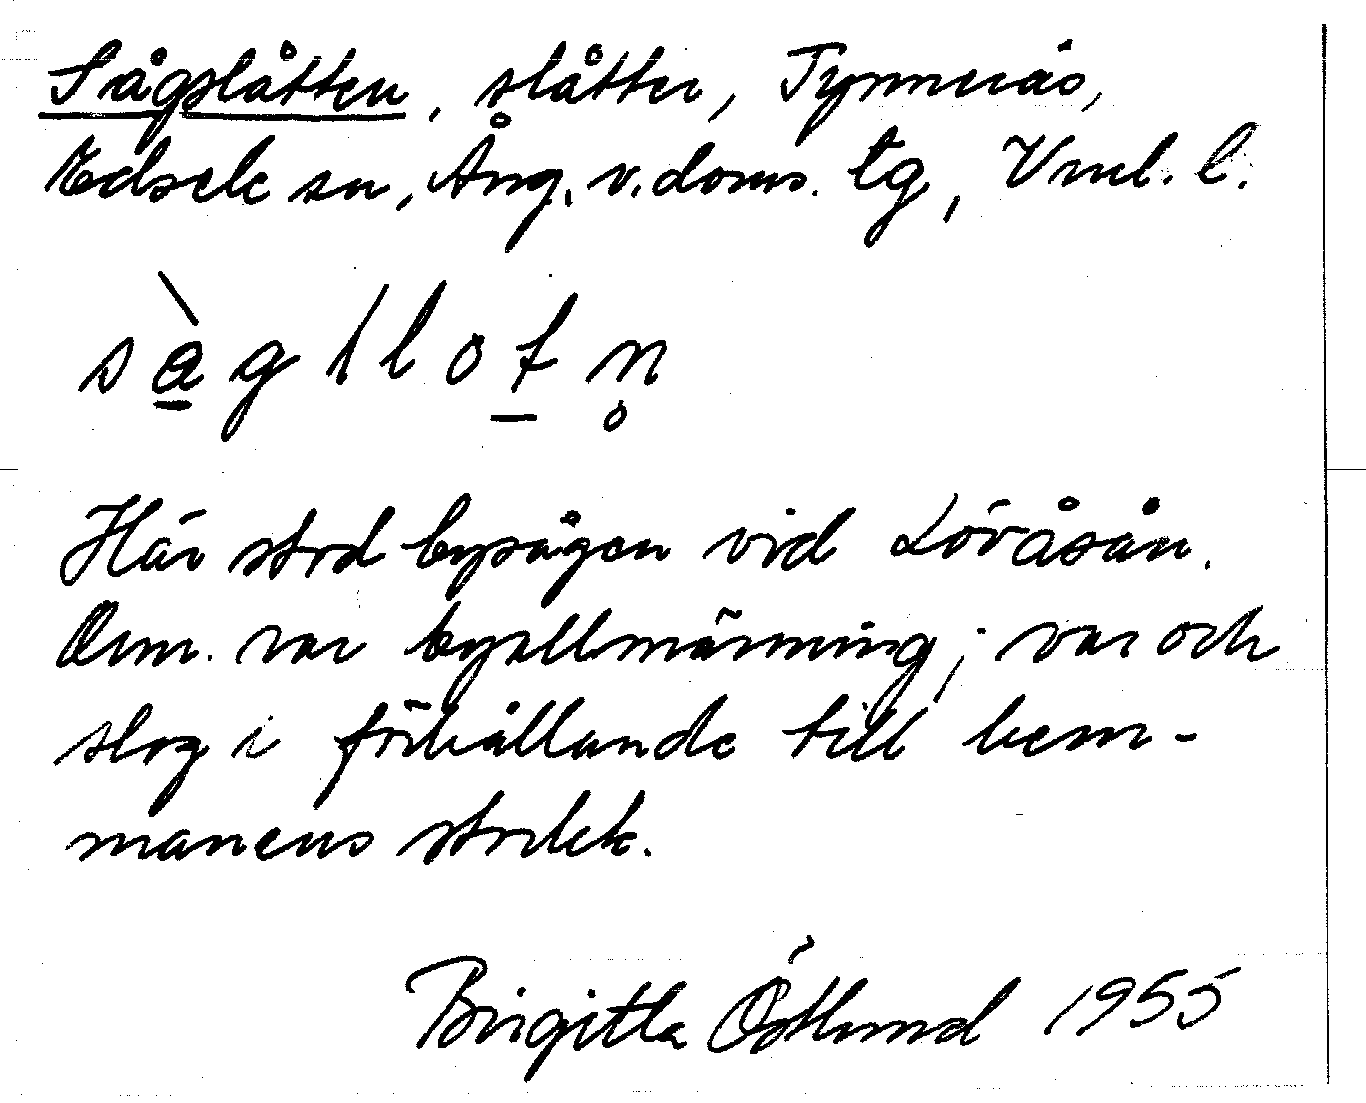 Sågslåtten, slåtter, Tynnerås,
Edsele sn, Ång. v. doms. tg, Vnrl. l.
sàgſlotn̥
Här stod bysågen vid Lövåsån.
Omr. var byallmänning; var och
slog i förhållande till hem-
manens storlek.
Birgitta Östlund 1955